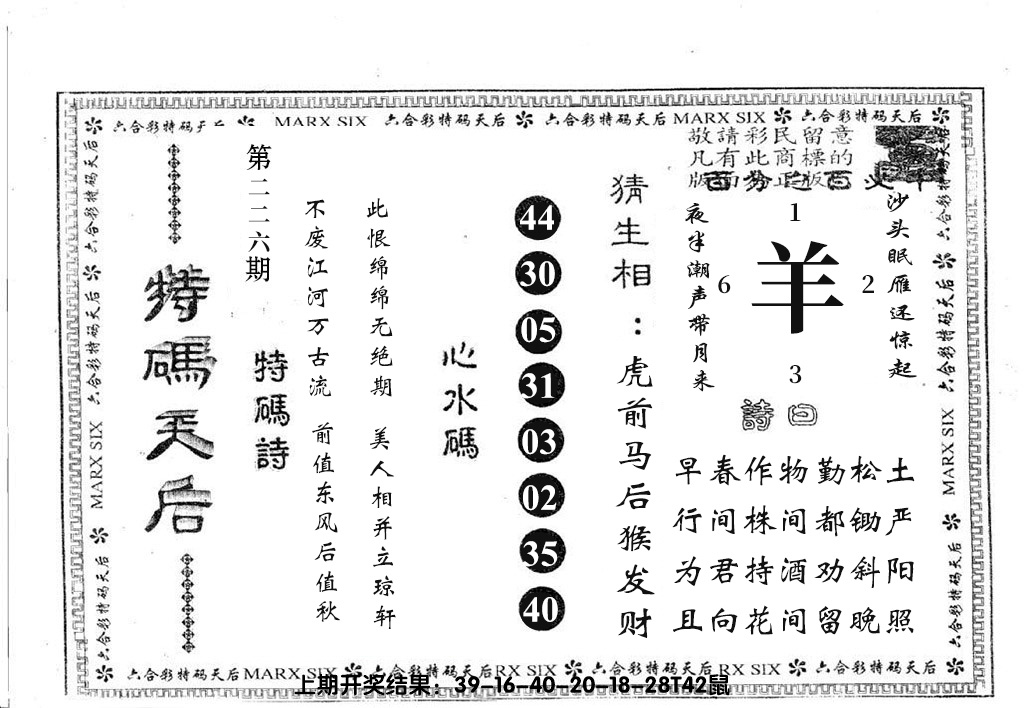 六合彩特码天后 MARX SIX 六合彩特码天后 六合彩特码天后 MARX SIX 六合彩特码天后
敬請彩民留意
凡有此商標的
沙头眠雁还惊起
夜半潮声带月来
1
6 羊 2
3
詩曰
土严阳照
松锄斜晚
勤都劝留
物间酒间
作株持花
春间君向
早行为且
猜生相：虎前马后猴发财
44
30
05
31
03
02
35
40
心水碼
此恨绵绵无绝期 美人相并立琼轩
不废江河万古流 前值东风后值秋
特碼詩
第二二六期
特碼天后
六合彩特码天后 六合彩特码天后 MARX SIX 六合彩特码天后
六合彩特码天后 六合彩特码天后 MARX SIX 六合彩特码天后
六合彩特码天后 MARX SIX 六合彩特码天后 RX SIX 六合彩特码天后 RX SIX 六合彩特码天后
上期开奖结果：39-16-40-20-18-28T42鼠